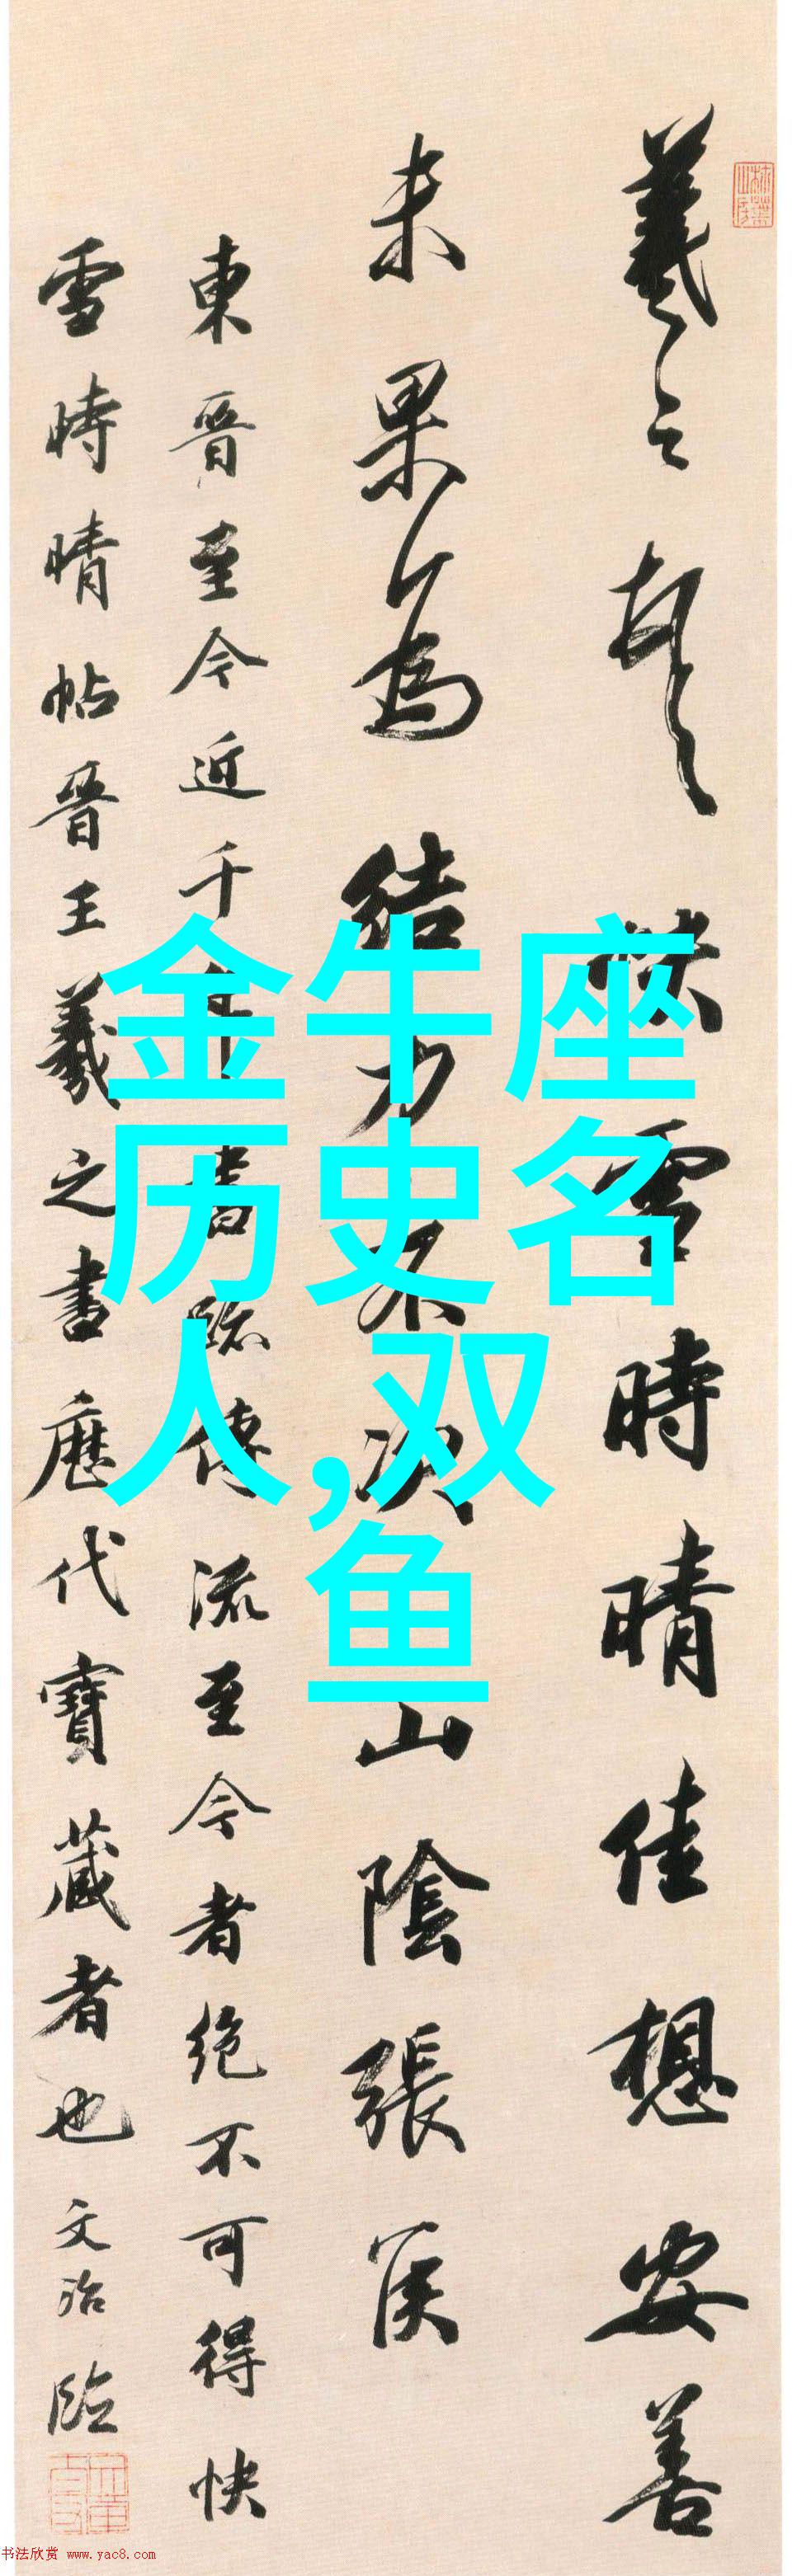 羲之頓首快雪時晴佳想安善
未果為結力不次山陰張侯
東晉至今近千年書跡傳流至今者絕不可得快
雪時晴帖晉王羲之書歷代寶藏者也文治臨
金牛座
历史名
人,双
鱼
书法欣赏 www.yac8.com